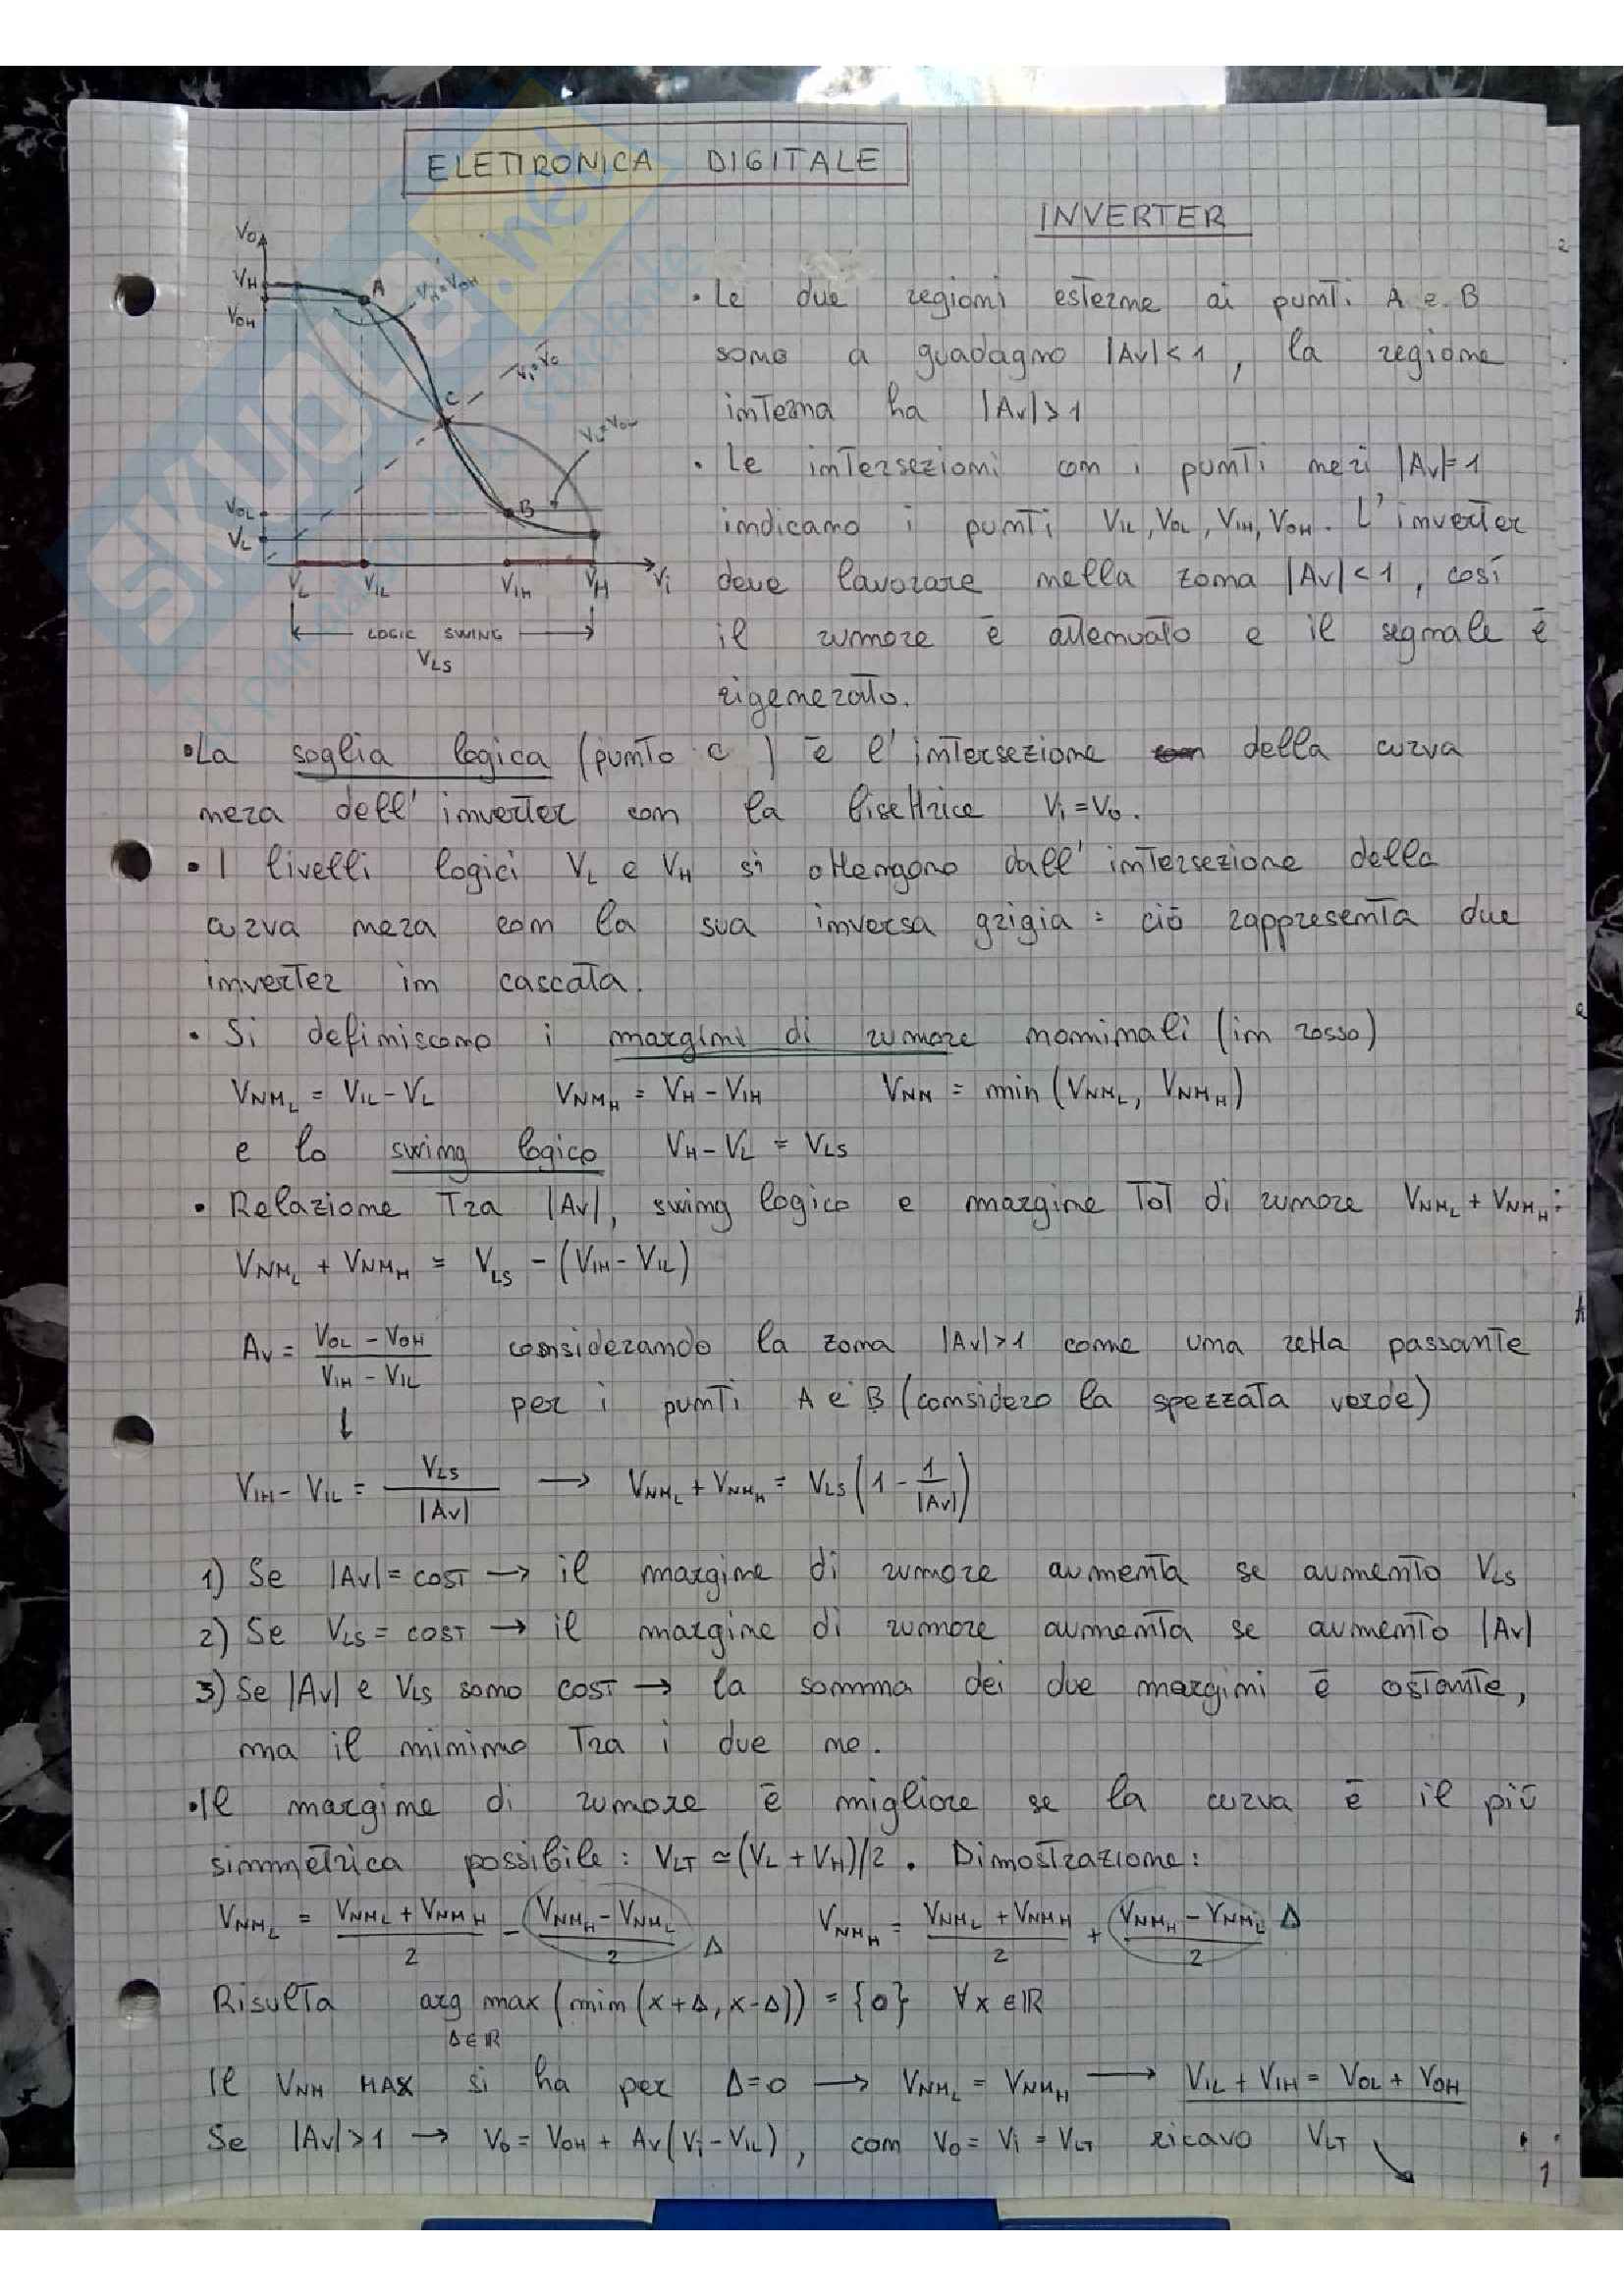 ELETTRONICA DIGITALE
INVERTER
Vo
VH
VOH
A
VH=VOH
Vi=Vo
C
VL=VOL
VOL
B
VL
VL VIL VIH VH Vi
LOGIC SWING
VLS
• Le due regioni esterne ai punti A e B
sono a guadagno |Av|<1, la regione
interna ha |Av|>1
• Le intersezioni con i punti neri |Av|=1
indicano i punti VIL, VOL, VIH, VOH. L'inverter
deve lavorare nella zona |Av|<1, così
il rumore è attenuato e il segnale è
rigenerato.
• La soglia logica (punto C) è l'intersezione con della curva
nera dell'inverter con la bisettrice Vi=Vo.
• I livelli logici VL e VH si ottengono dall'intersezione della
curva nera con la sua inversa grigia: ciò rappresenta due
inverter in cascata.
• Si definiscono i margini di rumore nominali (in rosso)
VNML = VIL-VL VNMH = VH-VIH VNM = min (VNML, VNMH)
e lo swing logico VH-VL = VLS
• Relazione tra |Av|, swing logico e margine tot di rumore VNML + VNMH:
VNML + VNMH = VLS - (VIH-VIL)
Av = (VOL - VOH)/(VIH - VIL) considerando la zona |Av|>1 come una retta passante
↓ per i punti A e B (considero la spezzata verde)
VIH - VIL = VLS/|Av| → VNML + VNMH = VLS (1 - 1/|Av|)
1) Se |Av|= cost → il margine di rumore aumenta se aumento VLS
2) Se VLS = cost → il margine di rumore aumenta se aumento |Av|
3) Se |Av| e VLS sono cost → la somma dei due margini è costante,
ma il minimo tra i due no.
• Il margine di rumore è migliore se la curva è il più
simmetrica possibile: VLT ≃ (VL + VH)/2. Dimostrazione:
VNML = (VNML + VNMH)/2 - (VNMH - VNML)/2 Δ VNMH = (VNML + VNMH)/2 + (VNMH - VNML)/2 Δ
Risulta arg max (min (x+Δ, x-Δ)) = {0} ∀x∈ℝ
Δ∈ℝ
Il VNM MAX si ha per Δ=0 → VNML = VNMH → VIL + VIH = VOL + VOH
Se |Av|>1 → Vo = VOH + Av(Vi-VIL), con Vo = Vi = VLT ricavo VLT
1
SKUOLA.net